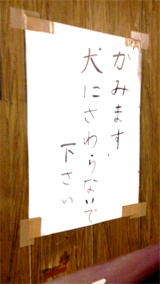 かみます。
犬にさわらないで
下さい